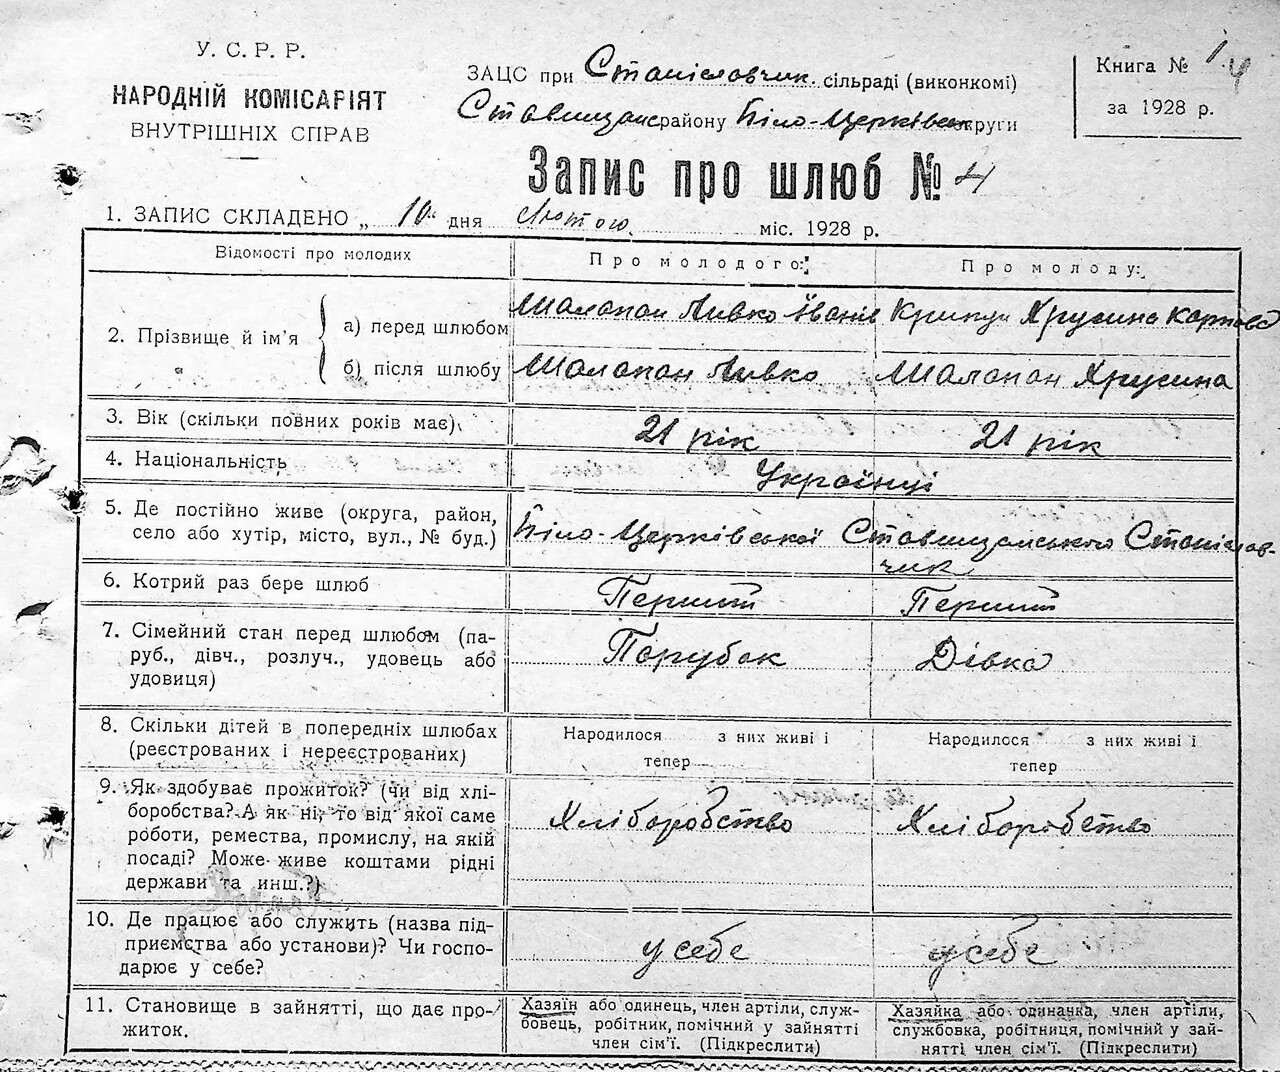 У. С. Р. Р.
НАРОДНІЙ КОМІСАРІЯТ
ВНУТРІШНІХ СПРАВ
ЗАЦС при Станіславчик. сільраді (виконкомі)
Ставищанс району Біло-Церківськ округи
Книга № 1
за 1928 р.
Запис про шлюб № 4
1. ЗАПИС СКЛАДЕНО „ 10 " дня Лютого міс. 1928 р.
Відомості про молодих
Про молодого:
Про молоду:
2. Прізвище й ім'я
а) перед шлюбом
Шалапан Ливко Іванів
Хрусина Карпова
б) після шлюбу
Шалапан Ливко
Шалапан Хрусина
3. Вік (скільки повних років має).
21 рік
21 рік
4. Національність
Українці
5. Де постійно живе (округа, район,
село або хутір, місто, вул., № буд.)
Біло-Церківської Ставищанського Станіслав-
чик
6. Котрий раз бере шлюб
Перший
Перший
7. Сімейний стан перед шлюбом (па-
руб., дівч., розлуч., удовець або
удовиця)
Парубок
Дівка
8. Скільки дітей в попередніх шлюбах
(реєстрованих і нереєстрованих)
Народилося з них живі і
тепер
Народилося з них живі і
тепер
9. Як здобуває прожиток? (чи від хлі-
боробства? А як ні, то від якої саме
роботи, ремества, промислу, на якій
посаді? Може живе коштами рідні
держави та инш.?)
Хліборобство
Хліборобство
10. Де працює або служить (назва під-
приємства або установи)? Чи госпо-
дарює у себе?
у себе
у себе
11. Становище в зайнятті, що дає про-
житок.
Хазяїн або одинець, член артіли, служ-
бовець, робітник, помічний у зайнятті
член сім'ї. (Підкреслити)
Хазяйка або одиначка, член артіли,
службовка, робітниця, помічний у зай-
нятті член сім'ї. (Підкреслити)